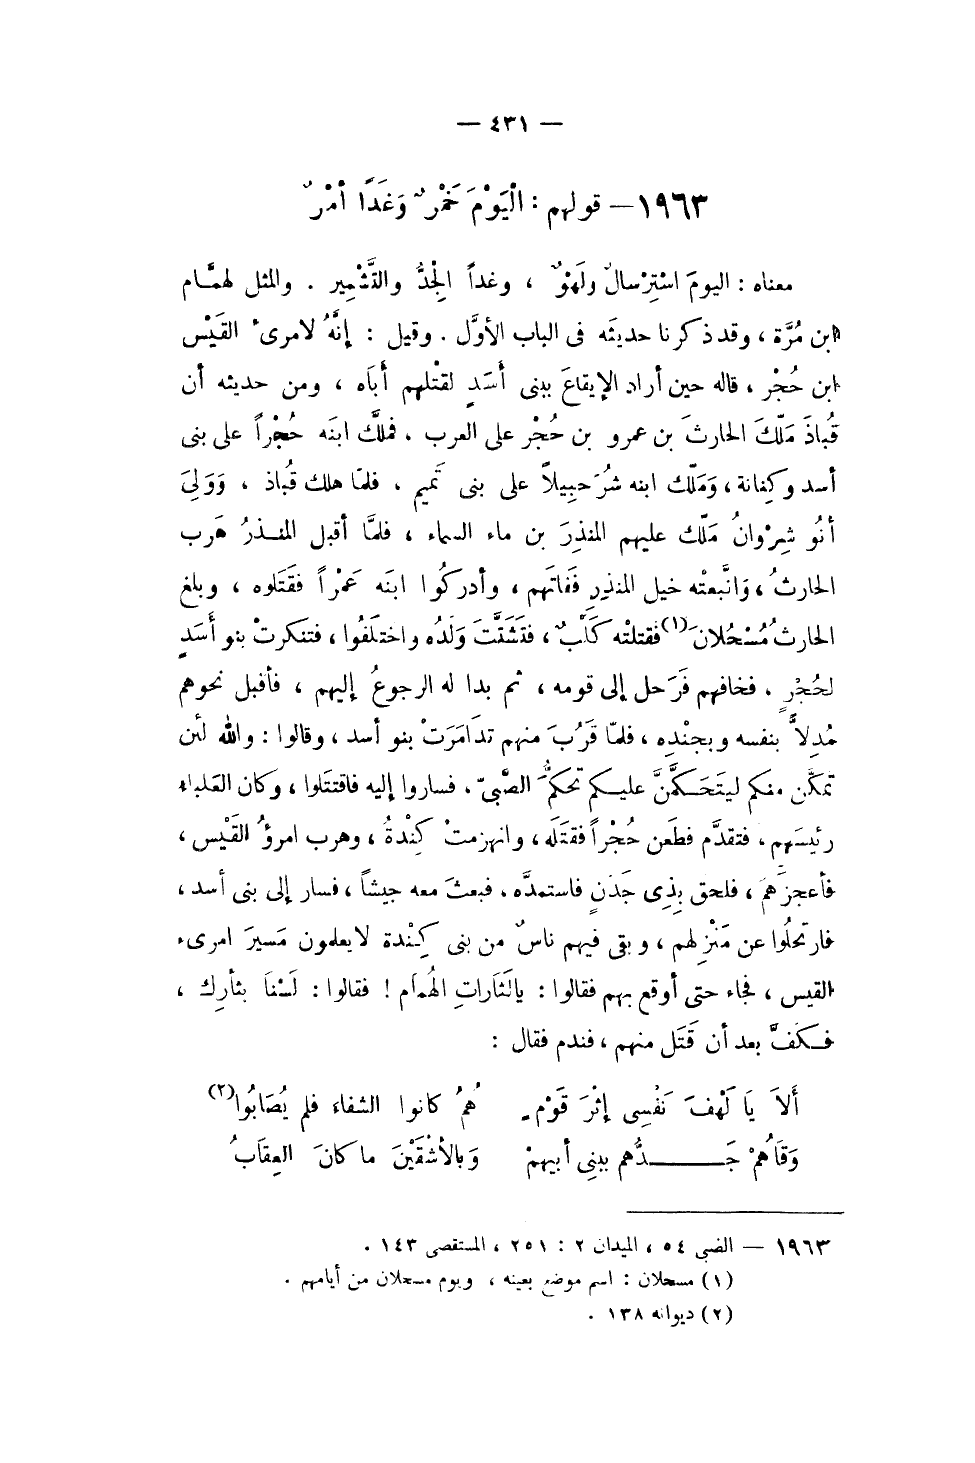 — ٤٣١ —
١٩٦٣ — قولهم : الْيَوْمَ خَمْرٌ وَغَدًا أَمْرٌ
معناه : اليومَ اسْتِرْسالٌ ولَهْوٌ ، وغداً الْجِدُّ والتَّشْمِير . والمثل لهمَّام
ابن مُرَّة ، وقد ذكرنا حديثَه فى الباب الأوَّل . وقيل : إنَّهُ لامرىء القَيْس
ابن حُجْر ، قاله حين أراد الإيقاعَ ببنى أَسَدٍ لقتْلهم أَبَاه ، ومن حديثه أن
قُباذَ مَلَّكَ الحارثَ بن عمرو بن حُجْر على العرب . فملَّك ابنَه حُجْراً على بنى
أسد وكِنانة ، وَمَلَّك ابنه شُرَحبِيلاً على بنى تَميم . فلمّا هلك قُباذ ، وَوَلِىَ
أنُو شِرْوانُ مَلَّك عليهم المنذِرَ بن ماء السماء ، فلمَّا أقبل المنذرُ هَرب
الحارثُ ، وَاتَّبعتْه خيل المنذرِ فَفَاتَهم ، وأدركُوا ابنَه عَمْراً فقَتَلوه ، وبلغ
الحارثُ مُسْحُلانَ (١) فقتلتْه كَلْبٌ ، فتَشَتَّتَ وَلَدُه واختلَفُوا ، فتنكرتْ بنو أَسَدٍ
لحُجْرٍ . فخافهم فَرَحل إلى قومه ، ثم بدا له الرجوعُ إليهم ، فأقبل نحوهم
مُدِلاًّ بنفسه وبجنْدِه ، فلمّا قَرُبَ منهم تذَامَرَتْ بنو أسد ، وقالوا : والله لئن
تمكَّن منكم ليتَحَكمَّنَّ عليكم تحكمَُّ الصَّبىّ . فساروا إليه فاقتتَلوا ، وكان العَلباء
رئيسَهم ، فتقدَّم فطَعن حُجْراً فقتَله ، وانهزمتْ كِنْدةُ ، وهرب امرؤُ القَيْس ،
فأعجزَهمْ ، فلحق بِذِى جَدَنٍ فاستمدَّه . فبعثَ معه جيشاً ، فسار إلى بنى أسد ،
فارتحلُوا عن مَنْزِلهم ، وبقى فيهم ناسٌ من بنى كِنْدة لا يعلمون مَسيرَ امرىء
القيس ، فجاء حتى أوقع بهم فقالوا : يالَثَاراتِ الهُمام ! فقالوا : لَسْنَا بثأرِك ،
فكفَّ بعد أن قَتَل منهم ، فندم فقال :
أَلاَ يَا لَهْفَ نَفْسِى إثْرَ قَوْمٍ هُمُ كانوا الشفاء فلم يُصَابُوا (٢)
وَقَاهُمْ جَدُّهم ببنِى أبيهمْ وَبالأشْقَيْنَ ما كانَ العِقَابُ
١٩٦٣ — الضبى ٥٤ ، الميدان ٢ : ٢٥١ ، المستقصى ١٤٣ .
(١) مسحلان : اسم موضع بعينه ، ويوم مسحلان من أيامهم .
(٢) ديوانه ١٣٨ .